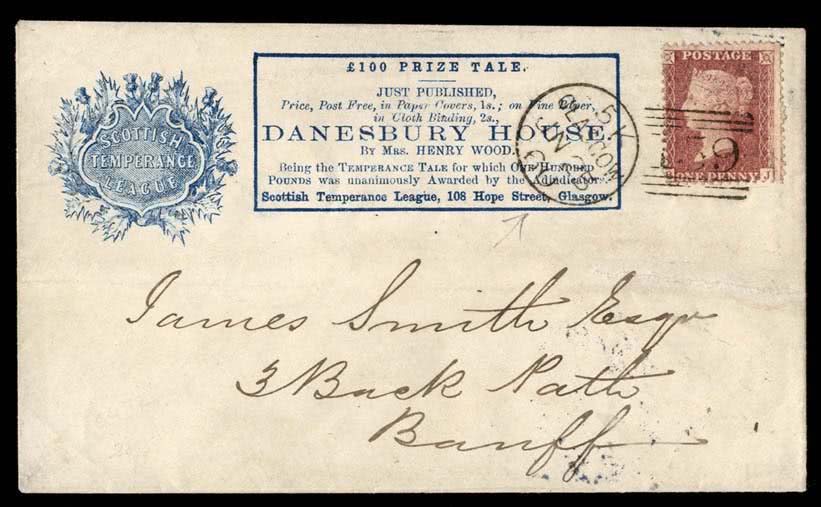 SCOTTISH
TEMPERANCE
LEAGUE
£100 PRIZE TALE.
JUST PUBLISHED,
Price, Post Free, in Paper Covers, 1s.; on Fine Paper,
in Cloth Binding, 2s.,
DANESBURY HOUSE.
BY MRS. HENRY WOOD.
Being the TEMPERANCE TALE for which ONE HUNDRED
POUNDS was unanimously Awarded by the Adjudicators.
Scottish Temperance League, 108 Hope Street, Glasgow.
GLASGOW
POSTAGE
ONE PENNY J
James Smith Esqr
3 Back Path
Banff